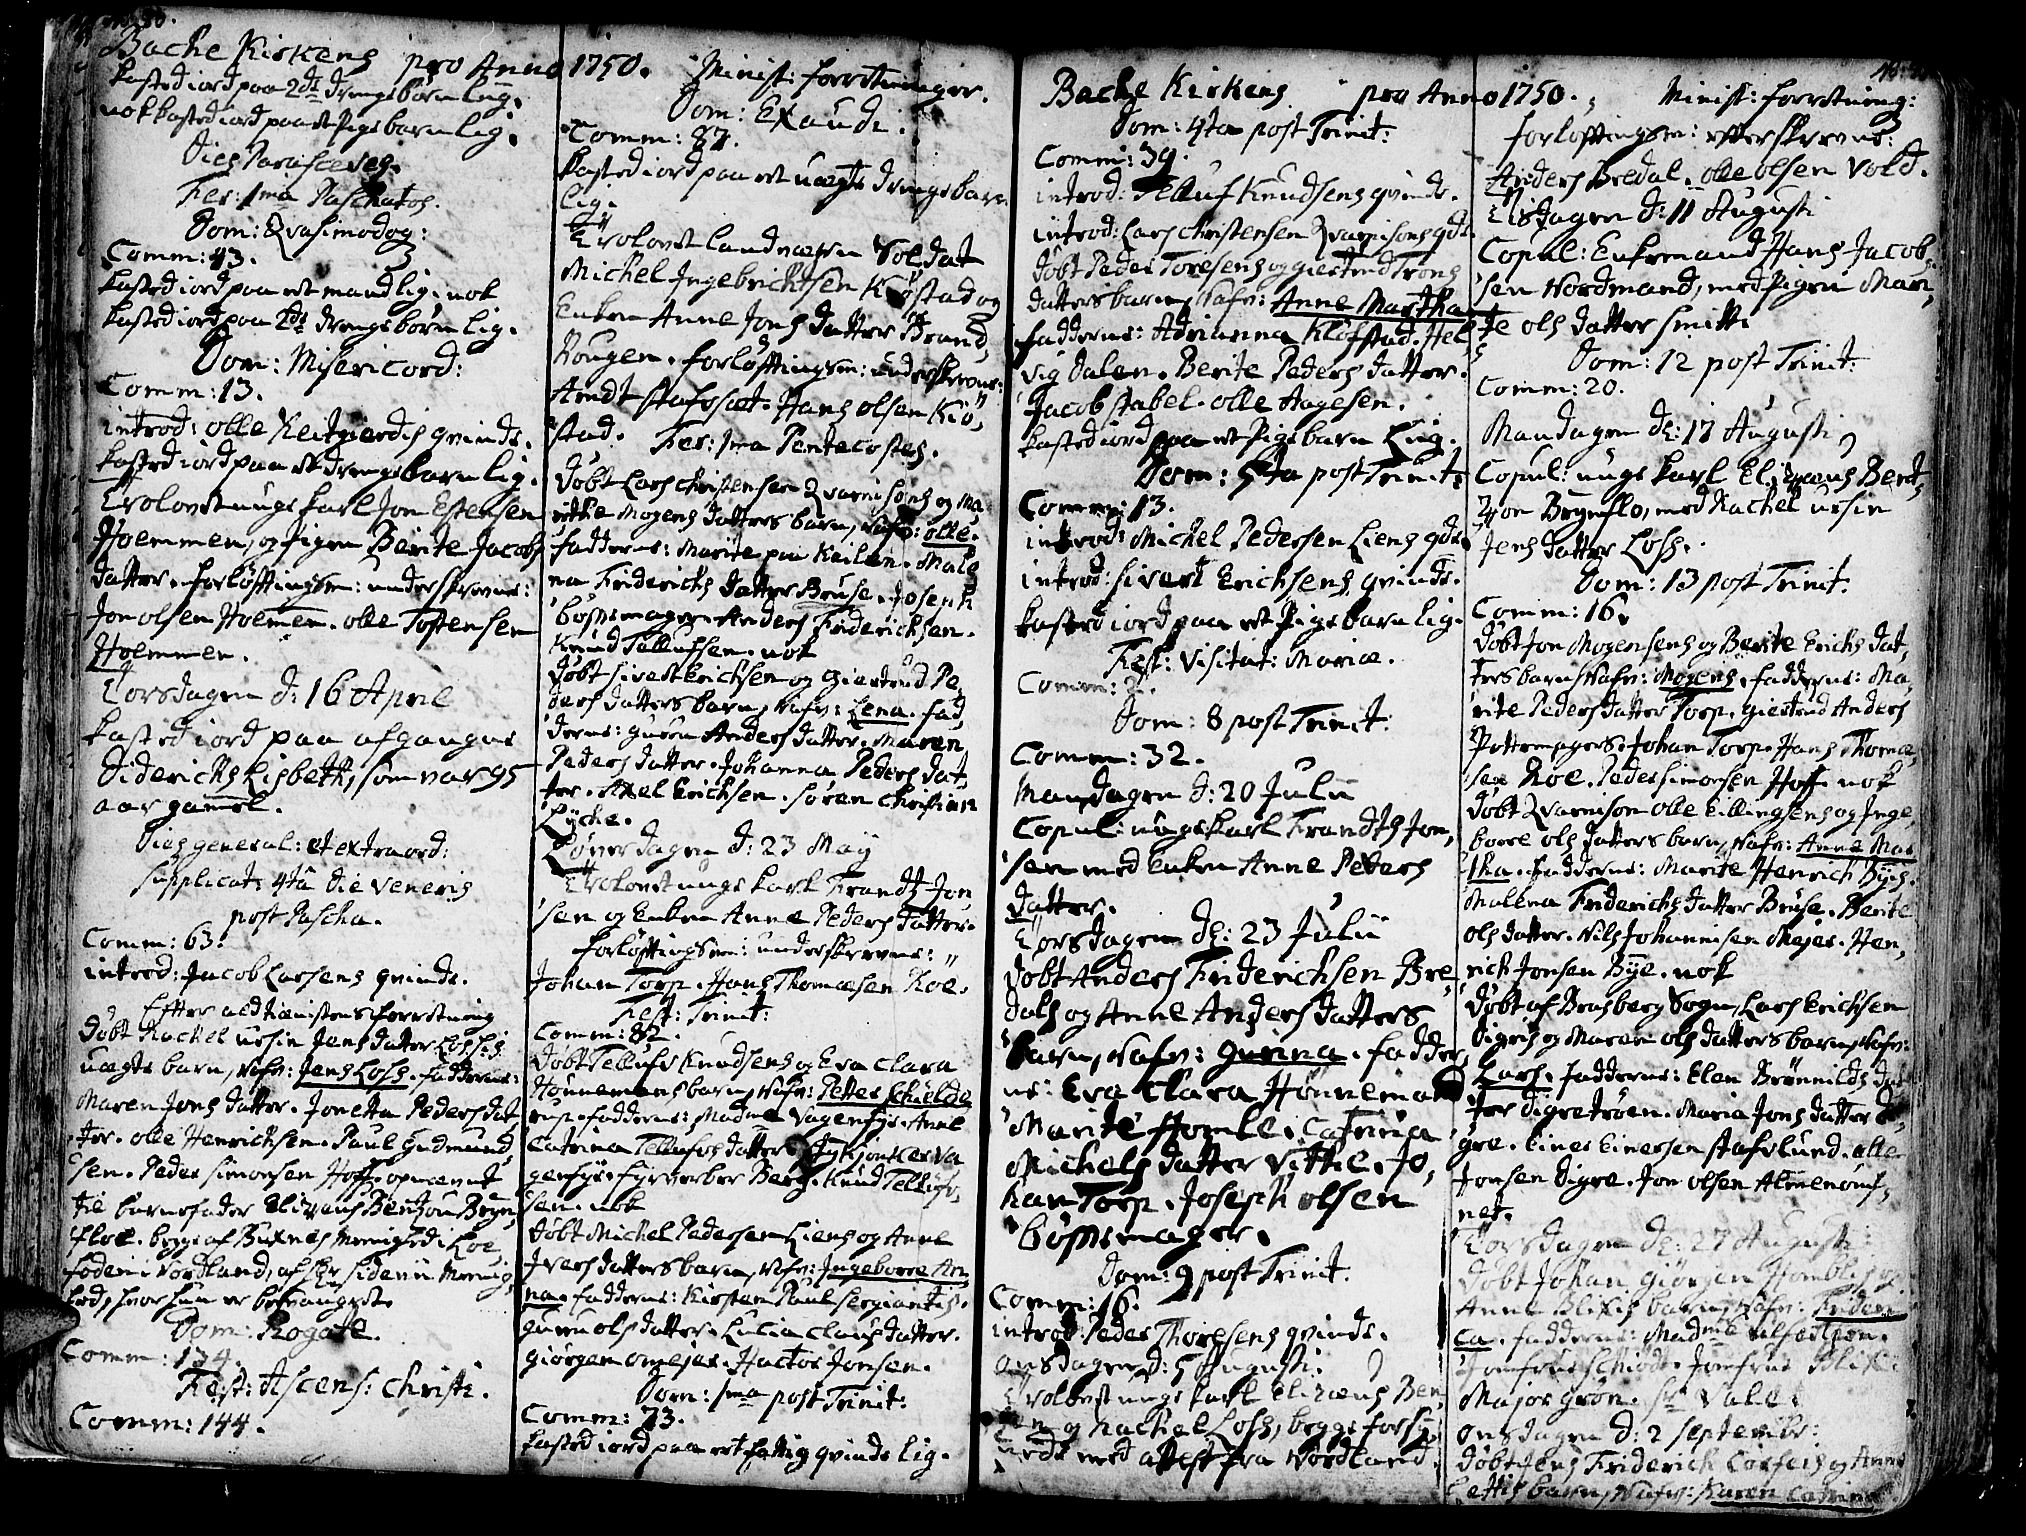 Bache Kirkens pro Anno
kasted iord paa 2de drengebørn liig.
nok kasted iord paa et Pigebarn lig.
Dies Parasceves.
Fer: 1ma Paschatos.
Dom: Qvasimodog:
Comm: 43.
kasted iord paa et mand lig. nok
kasted iord paa 2de drengebørn lig.
Dom: Misericord:
Comm: 13.
introd: olle Reitgierdes qvinde.
kasted iord paa et drengebarn lig.
Trolovet unge karl Jon Estensen
Hoemmen, og Pigen Berite Jacobs
datter. forløftingsm: underskrevne:
Jon olsen Hoemen. olle Tostensen
Hoemmen.
Torsdagen d: 16 April
kasted iord paa afgangne
Diderichs Lisbeth, som var 95
aar gamel.
Dies general: et extraord:
supplicat: 4ta die Veneris
post Pascha.
Comm: 63.
introd: Jacob Larsens qvinde.
Efter aedtienistens forretning
døbt Rachel ursin Jens datter Losses
uægte barn, Nafn: Jens Loss. fadderne:
Maren Jons datter. Jonetta Peders dat
ter. olle Henrichsen. Paul Gudmund
sen. Peder simonsen Hoff. opnevnt
til barnefader Elizæus Bentzon Bryn
floe. begge af Bixnes Menighed i Loe
foden i Nordland, af Hr: sidenii Menig
hed, hvor hun er besvangret.
Dom: Rogate.
Comm: 134.
Fest: Ascens: Christi.
Comm: 144.
1750. Minist: forretninger.
Dom: Exaudi.
Comm: 87.
kasted iord paa et uægte drengebarn
lig.
Trolovet landværn Soldat
Michel Ingebrichtsen Kiøstad og
Enken Anne Jons datter Brand
Hougen. forløftingsm: underskrevne:
Arndt stafoset. Hans olsen Kiø
stad. Fer: 1ma Pentecostes.
Døbt Lars Christensen Qvarnsons og Ma
ritte Mogens datters barn, Nafn: olle.
fadderne: Marite paa Keilen. Male
na Friderichs datter Bruse. Joseph
bøssemager. Anders Friderichsen.
Knud Tellufsen. nok
døbt sivert Erichsen og Giertrud Pe
ders datters barn, Nafn: Lena. fad
derne: Guru Anders datter. Maren
Peders datter. Johanna Peders dat
ter. Axel Erichsen. søren Christian
Lyche.
Løverdagen d: 23 May
Trolovet unge karl Frandtz Jon
sen og Enken Anne Peders datter.
forløftingsm: underskrevne:
Johan Torp. Hans Thomæsen Roe.
Fest: Trinit:
Comm: 82.
Døbt Tellufs Knudsens og Eva Clara
Hønnemans barn, Nafn: Petter Schielde
rup. fadderne: Madme Vagenfys. Anne
Catrina Tellufs datter. Fenrik Va
genfys. fyrverber Berg. Knud Tellufs
sen. nok
døbt Michel Pedersen Liens og Anne
Ivers datters barn, Nafn: Ingeborre An
na. fadderne: Kirsten Paul sergiantes.
Guru ols datter. Lucia Claus datter.
Giørgen Meyer. Hactor Jonsen.
Dom: 1ma post Trinit:
Comm: 73.
kasted iord paa et fattig qvinde lig.
Bache Kirkens pro Anno 1750. Minist: forretning:
Dom: 4ta post Trinit:
Comm: 39.
introd: Telluf Knudsens qvinde.
introd: Lars Christensen Qvarnsons qde.
døbt Peder Toresens og Giertrud Trons
datters barn, Nafn: Anne Martha.
fadderne: Adrianna Klofstad. Hel
vig Dalen. Berite Peders datter.
Jacob stabel. olle Aagesen.
kasted iord paa et Pigebarn Liig.
Dom: 5ta post Trinit:
Comm: 13.
introd: Michel Pedersen Liens qde.
introd: sivert Erichsens qvinde.
kasted iord paa et Pigebarn lig.
Fest: Visitat: Mariæ.
Comm: 2.
Dom: 8 post Trinit:
Comm: 32.
Mandagen d: 20 Julii
Copul: unge karl Frandtz Jon
sen med Enken Anne Peders
datter.
Torsdagen d: 23 Julii
døbt Anders Friderichsen Bre
dals og Anne Anders datters
barn, Nafn: Gunna. fadder
ne: Eva Clara Hønneman
Marite Homle. Catrina
Michels datter Vittie. Jo
han Torp. Joseph olsen
bøssemager.
Dom: 9 post Trinit.
Comm: 16.
introd: Peder Thoresens qvinde.
onsdagen d: 5 Augusti.
Trolovet unge karl Elizæus Ben
tzon og Rachel Loss, begge forsy
nede med attest fra Nordland.
forløftingsm: efterskrevne:
Anders Bredal. olle olsen Vold.
Tisdagen d: 11 Augusti
Copul: Enkemand Hans Jacob
sen Nordmand, med Pigen Mari
te ols datter smitt.
Dom: 12 post Trinit:
Comm: 20.
Mandagen d: 17 Augusti
Copul: unge karl Elizæus Bent
zon Brynflo, med Rachel ursin
Jens datter Loss.
Dom: 13 post Trinit:
Comm: 16.
Døbt Jon Mogensens og Berite Erichs dat
ters barn, Nafn: Mogens. fadderne: Ma
rite Peders datter Torp. Giertrud Anders
Pottemagers. Johan Torp. Hans Thomæ
sen Roe. Peder simonsen Hoff. nok
døbt Qvarnson olle Ellingsens og Inge
borre ols datters barn, Nafn: Anne Mar
tha. fadderne: Marite Henrich Byes.
Malena Friderichs datter Bruse. Berite
ols datter. Nils Johannisen Mejer. Hen
rich Jonsen Bye. nok
døbt af Brasberg Sogn, Lars Erichsen
digres og Maren ols datters barn, Nafn:
Lars. fadderne: Elen Brønnilds dat
ter digretrøen. Marie Jons datter di
gre. Einer Einersen stafslund. olle
Jonsen digre. Jon olsen Almenoms
net.
Torsdagen d: 27 Augusti:
døbt Johan Giørgen Hombles og
Anne Blixes barn, Nafn: Frideri
ca. fadderne: Madme ulfestzon.
Jomfrue schiøt. Jomfrue Blix.
Major Grøn. Hr Vale.
onsdagen d: 2 Septembr:
døbt Jens Friderich Corfeis og Anne
ettis barn, Nafn: Karen Catrina.